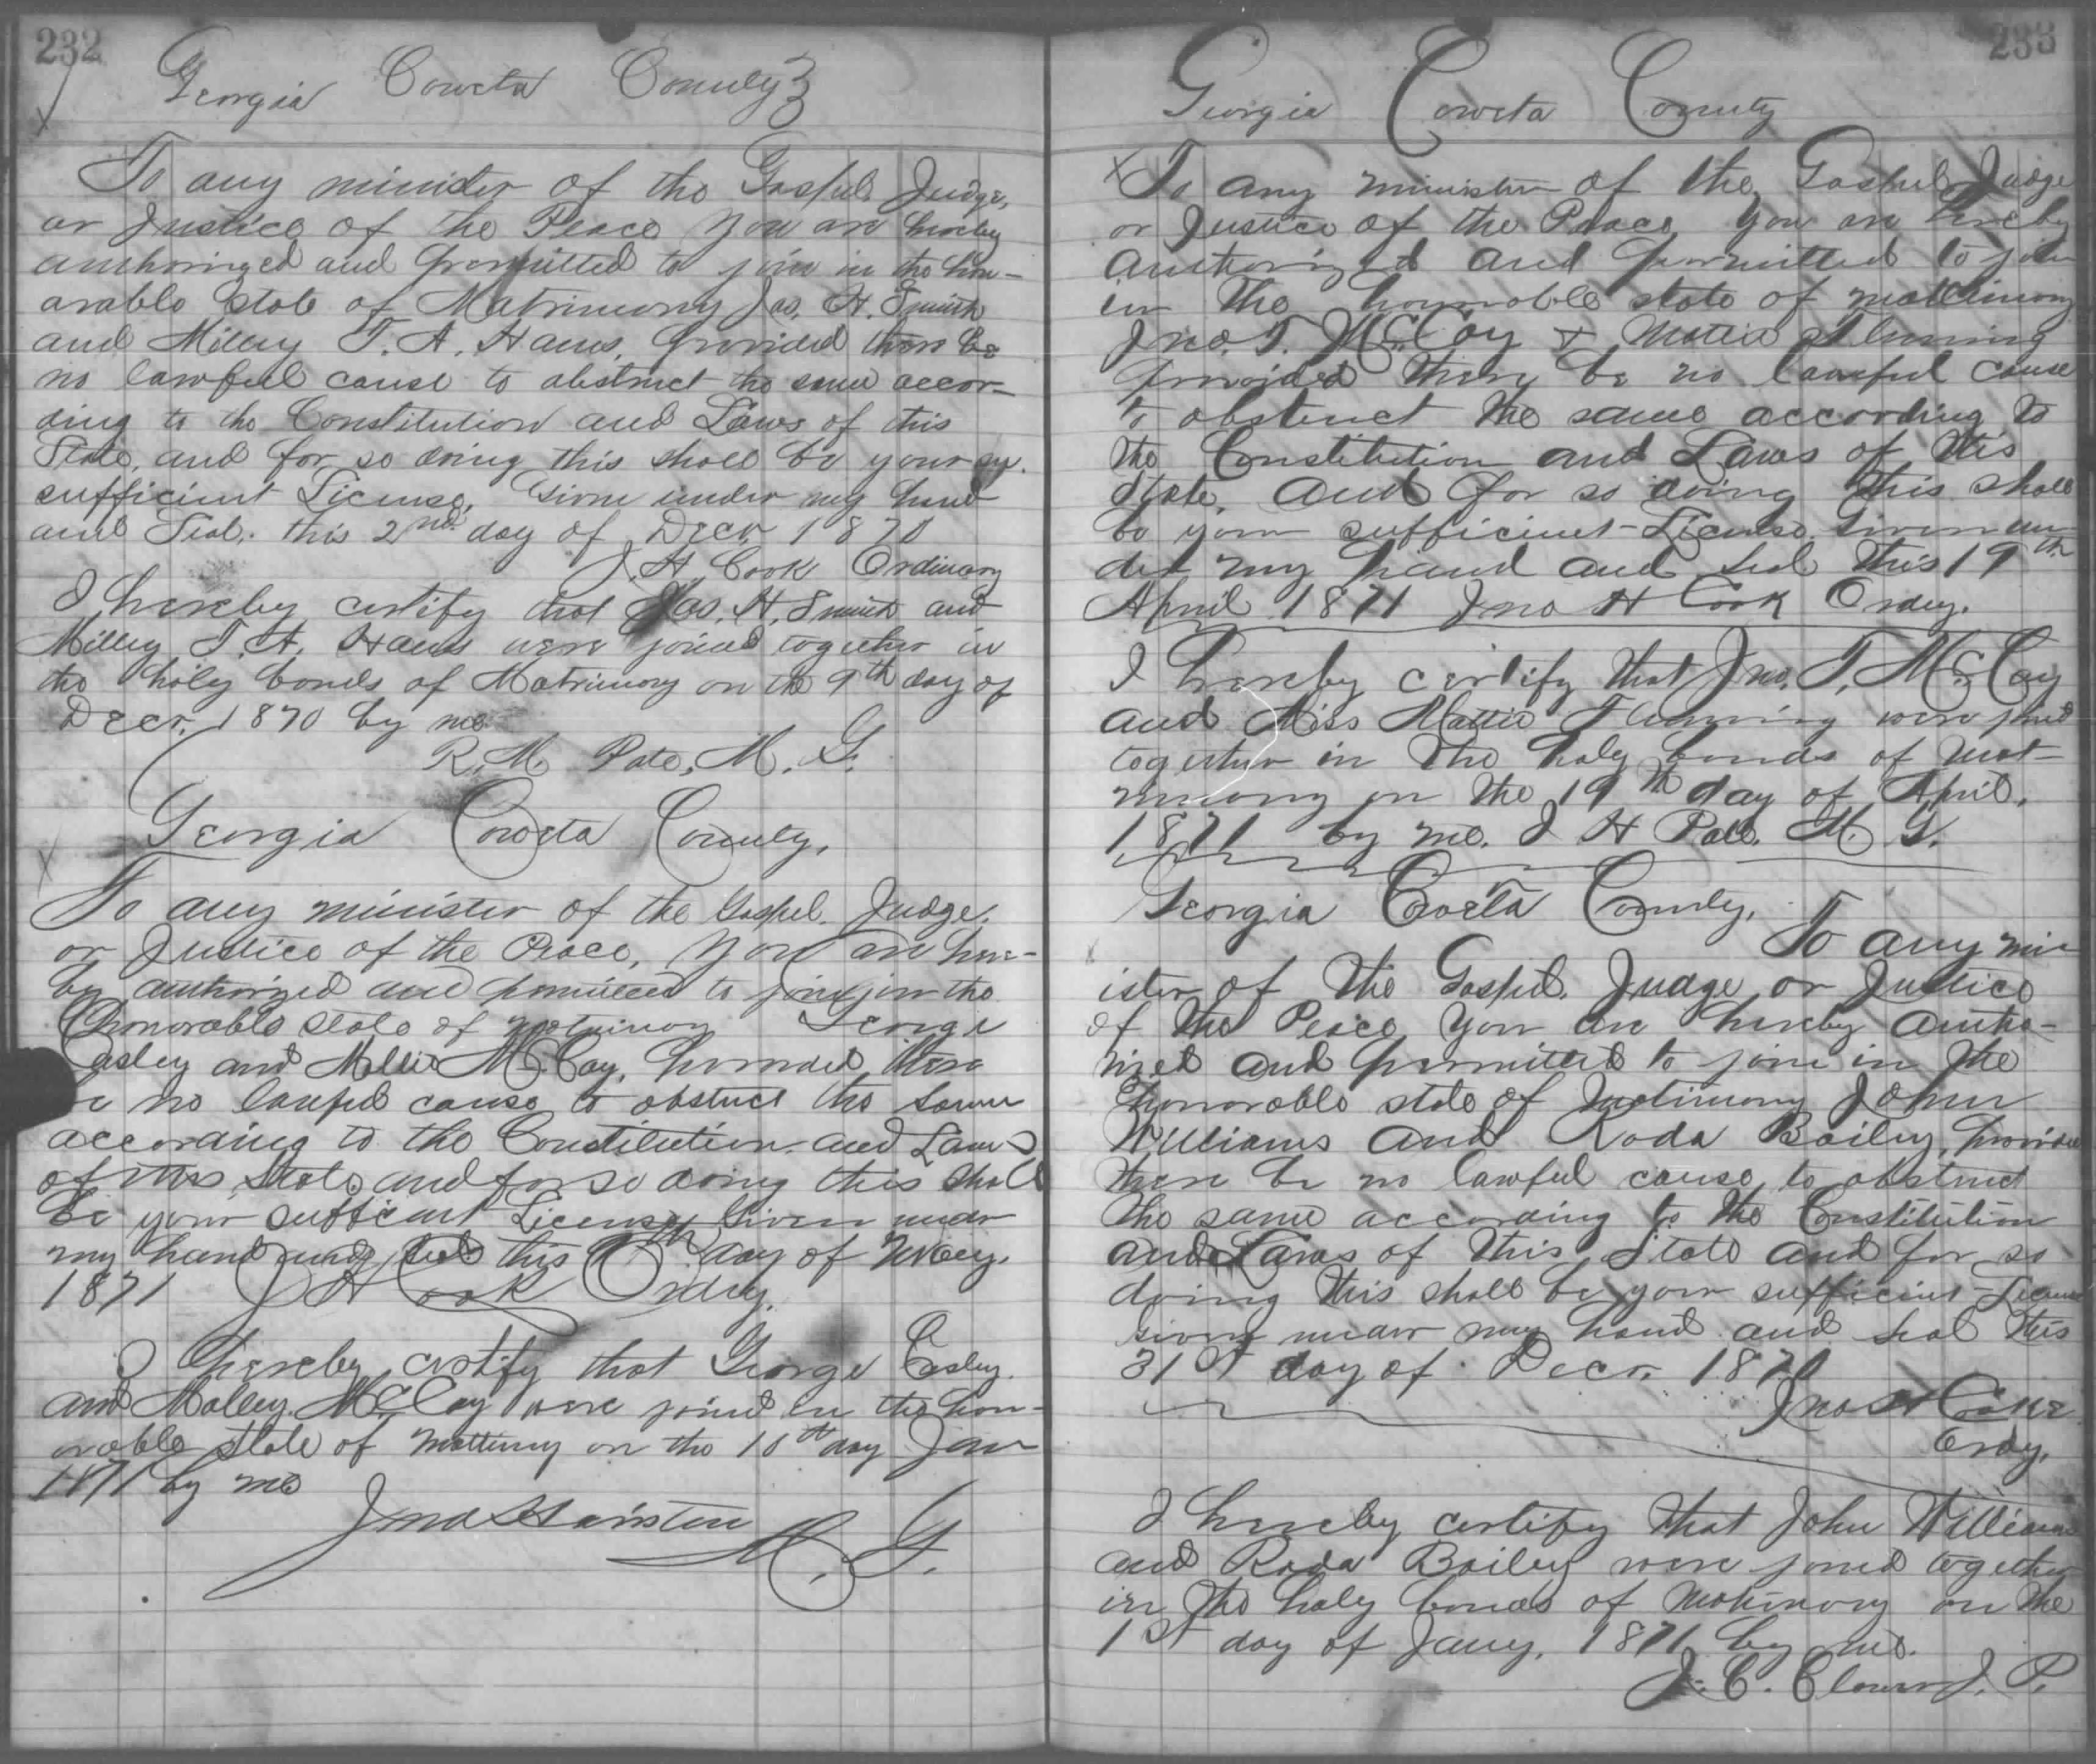 232
Georgia Coweta County
To any minister of the Gospel Judge,
or Justice of the Peace you are hereby
authorized and permitted to join in the hon-
arable state of Matrimony Jas. H. Smith
and Milley T. A. Haws, provided there be
no lawful cause to obstruct the same accor-
ding to the Constitution and Laws of this
State, and for so doing this shall be your
sufficient License, Given under my hand
and Seal, this 2nd day of Decr 1870
J. H. Cook Ordinary
I hereby certify that Jas. H. Smith and
Milley T. A. Haws were joined together in
the holy bonds of Matrimony on the 9th day of
Decr. 1870 by me
R. M. Pate, M. G.
Georgia Coweta County,
To any minister of the Gospel. Judge,
or Justice of the Peace, You are here-
by authorized and permitted to join in the
honorable state of matrimony George
Easley and Mollie McCoy, provided there
be no lawful cause to obstruct the same
according to the Constitution and Laws
of this State and for so doing this shall
be your sufficient License Given under
my hand and seal this day of
1871 J H Cook Ordry.
I hereby certify that George Easley
and Molley McCoy were joined in the hon-
orable state of mattimy on the 10th day Jan
1871 by me
Jno Hairston
M. G.
233
Georgia Coweta County
To any minister of the Gospel Judge
or Justice of the Peace, You are hereby
Authorized and permitted to join
in the honorable state of matrimony
Jno. T. McCoy & Mattie Fleming
provided there be no lawful cause
to obstruct the same according to
the Constitution and Laws of this
State, and for so doing this shall
be your sufficient License. Given un
der my hand and seal this 19th
April 1871 Jno H Cook Ordry.
I hereby certify that Jno. T. McCoy
and Miss Mattie Flemming were joined
together in the holy bonds of mat-
rimony on the 19th day of April,
1871 by me. J H Pate. M. G.
Georgia Coweta County,
To any min
ister of the Gospel. Judge or Justice
of the Peace You are hereby autho-
rized and permitted to join in the
honorable state of matrimony John
Williams and Roda Bailey, provided
there be no lawful cause to obstruct
the same according to the Constitution
and Laws of this State and for so
doing this shall be your sufficient License
given under my hand and seal this
31st day of Decr. 1870
Jno H Cook
Ordy.
I hereby certify that John Williams
and Roda Bailey were joined together
in the holy bonds of matrimony on the
1st day of Jany. 1871 by me.
J. C. Clower J. P.